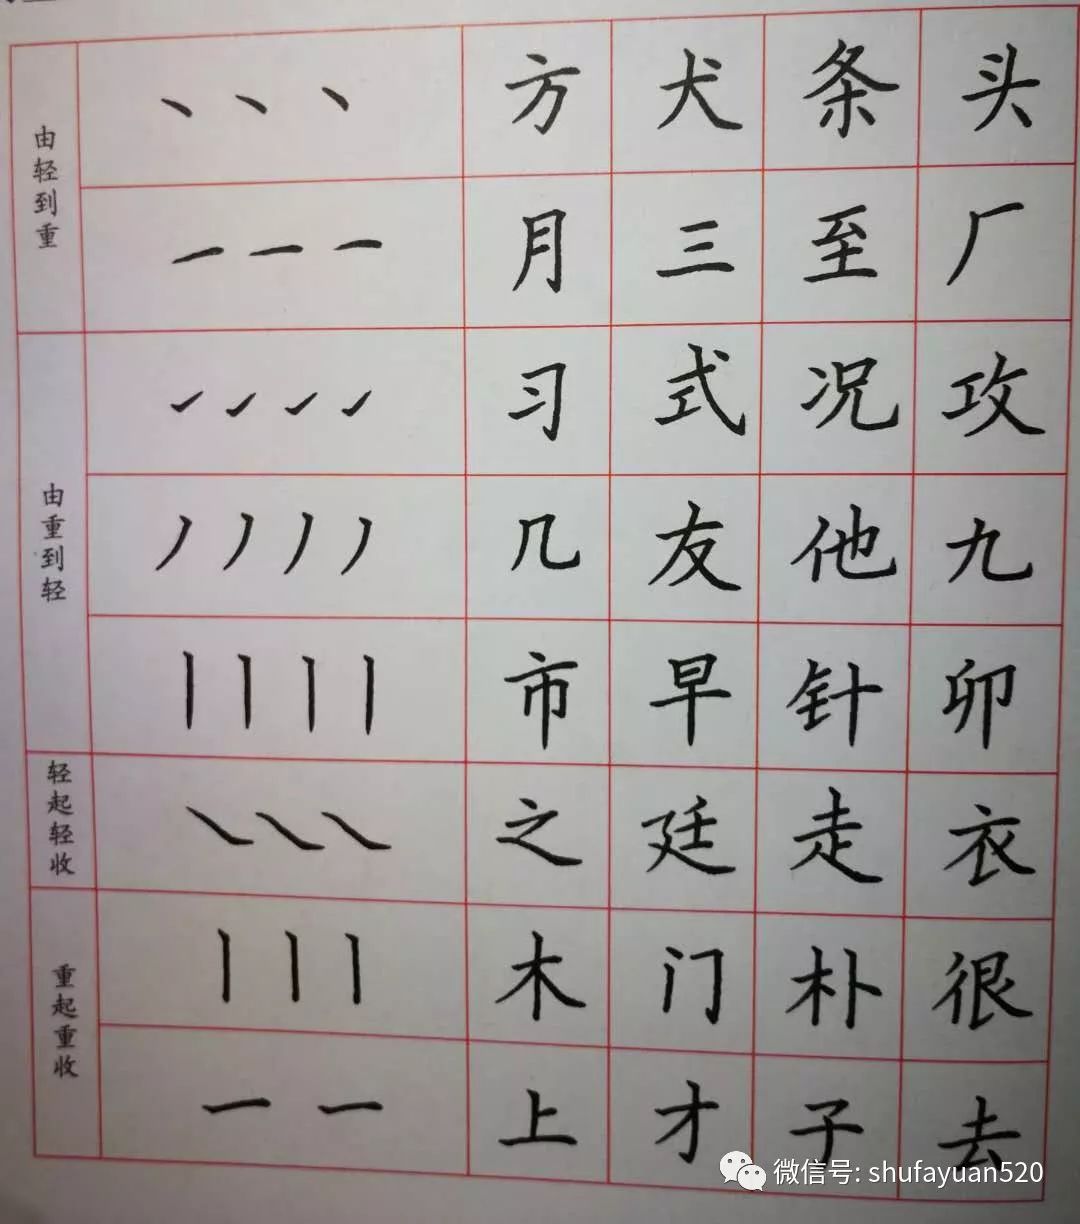 由轻到重
丶丶丶 方 犬 条 头
一一一 月 三 至 厂
由重到轻
习 式 况 攻
丿丿丿丿 几 友 他 九
丨丨丨丨 市 早 针 卯
轻起轻收
㇏㇏㇏ 之 廷 走 衣
重起重收
丨丨丨 木 门 朴 很
一一 上 才 子 去
微信号: shufayuan520